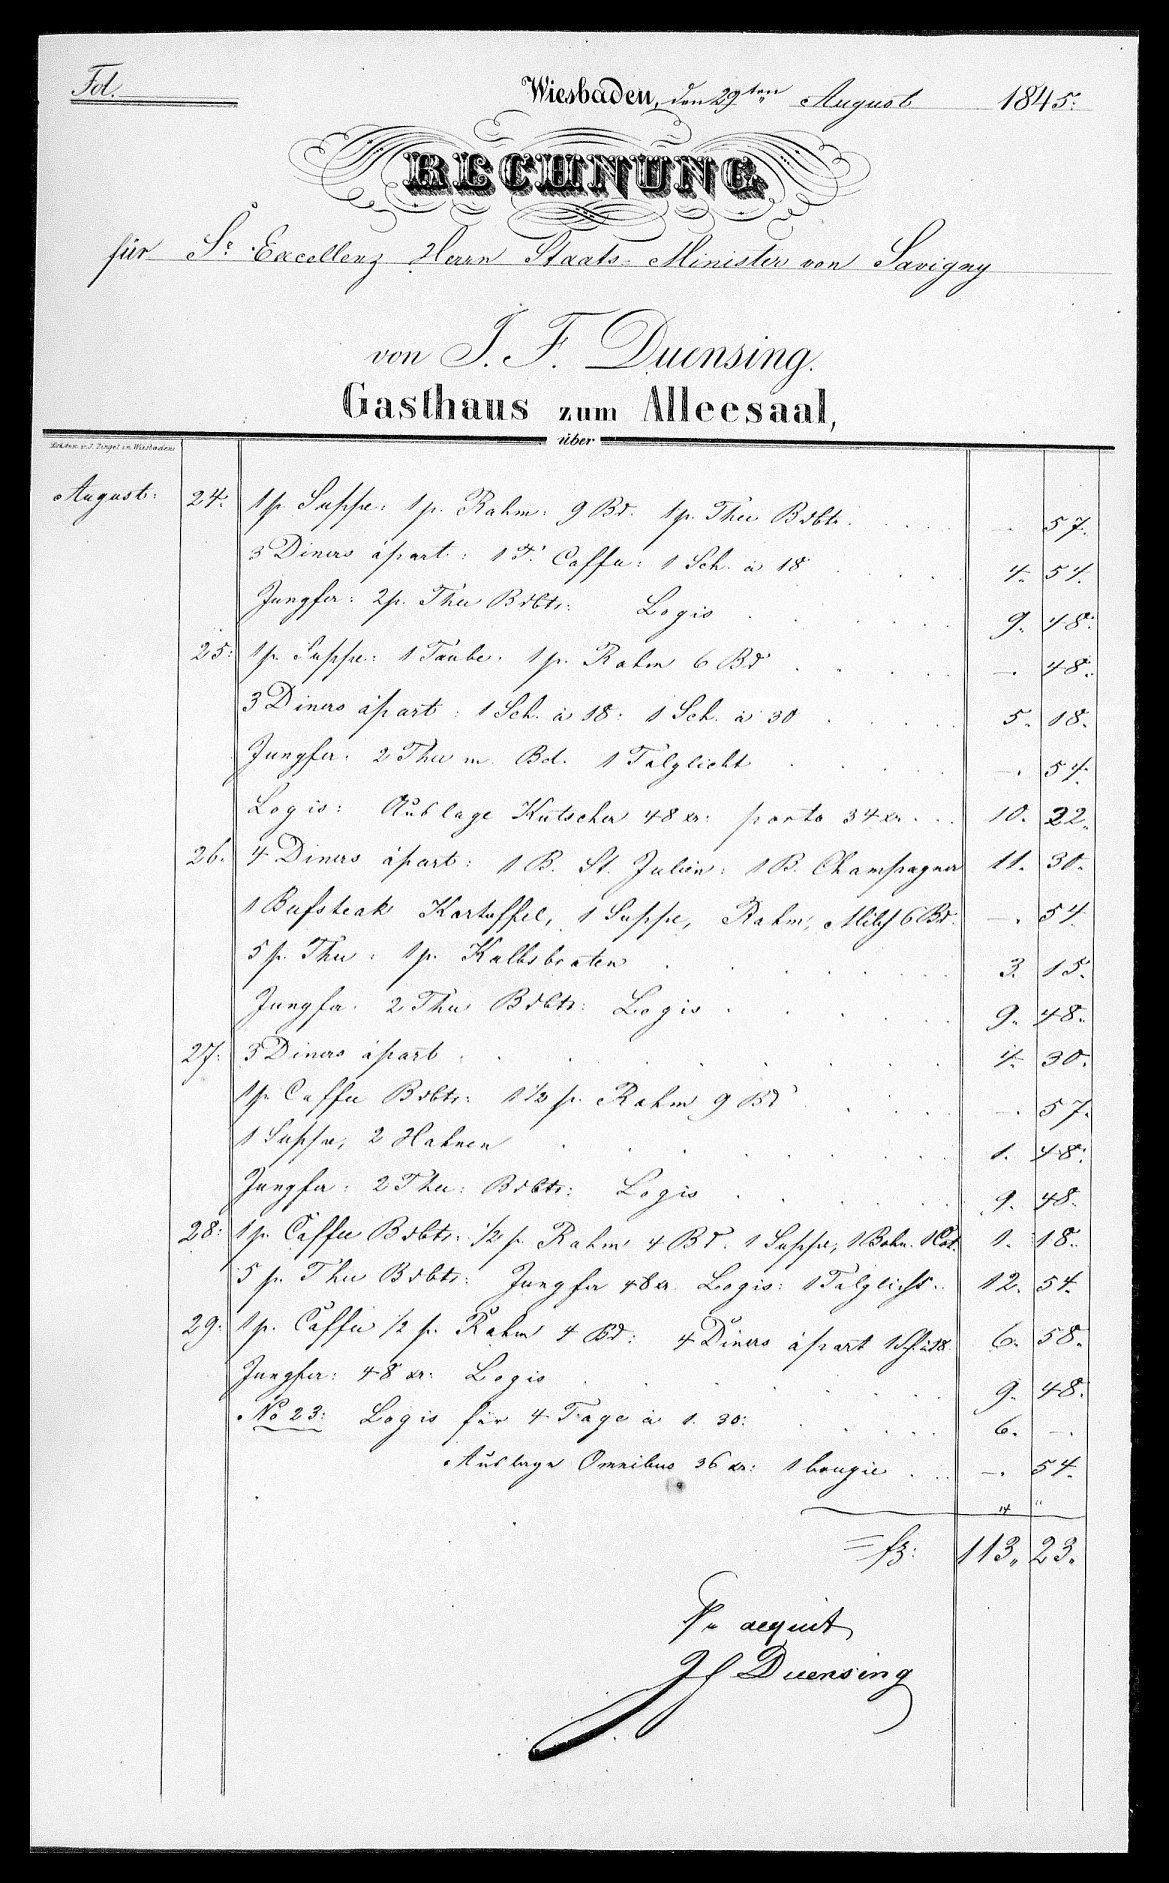 Fol.
Wiesbaden, den 29ten August 1845.
RECHNUNG
für Sr. Excellenz Herrn Staats-Minister von Savigny
von J. F. Duensing.
Gasthaus zum Alleesaal,
über
August: 24. 1 p. Suppe: 1 p. Rahm: 9 Bd. 1 p. Thee Bdbtr. —. 57.
3 Diners àpart: 1 T. Caffee: 1 Sch. à 18 4. 54.
Jungfer: 2 p. Thee Bdbtr: Logis 9. 48.
25: 1 p. Suppe: 1 Taube. 1 p. Rahm 6 Bd —. 48.
3 Diners àpart: 1 Sch. à 18: 1 Sch. à 30 5. 18.
Jungfer. 2 Thee m. Bd. 1 Talglicht —. 54.
Logis: Auslage Kutscher 48 xr: porto 34 xr. 10. 22.
26. 4 Diners àpart: 1 B. St. Julien: 1 B. Champagner 11. 30.
1 Bufsteak Kartoffel, 1 Suppe, Rahm, Milch 6 Bd. —. 54.
5 p. Thee: 1 p. Kalbsbraten 3. 15.
Jungfer. 2 Thee Bdbtr: Logis 9. 48.
27: 3 Diners àpart 4. 30.
1 p. Caffee Bdbtr: 1 1/2 p. Rahm 9 Bd —. 57.
1 Suppe, 2 Hahnen 1. 48.
Jungfer: 2 Thee: Bdbtr: Logis 9. 48.
28: 1 p. Caffee Bdbtr: 1/2 p. Rahm 4 Bd. 1 Suppe, 1 Bohn. 1 Cot. 1. 18.
5 p. Thee Bdbtr: Jungfer 48 xr. Logis: 1 Talglicht 12. 54.
29. 1 p. Caffee 1/2 p. Rahm 4 Bd: 4 Diners àpart 1 Sch à 18. 6. 58.
Jungfer: 48 xr: Logis 9. 48.
No 23: Logis für 4 Tage à 1. 30: 6. —.
Auslage Omnibus 36 xr: 1 bougie —. 54.
= f: 113. 23.
Pr acquit
JF Duensing